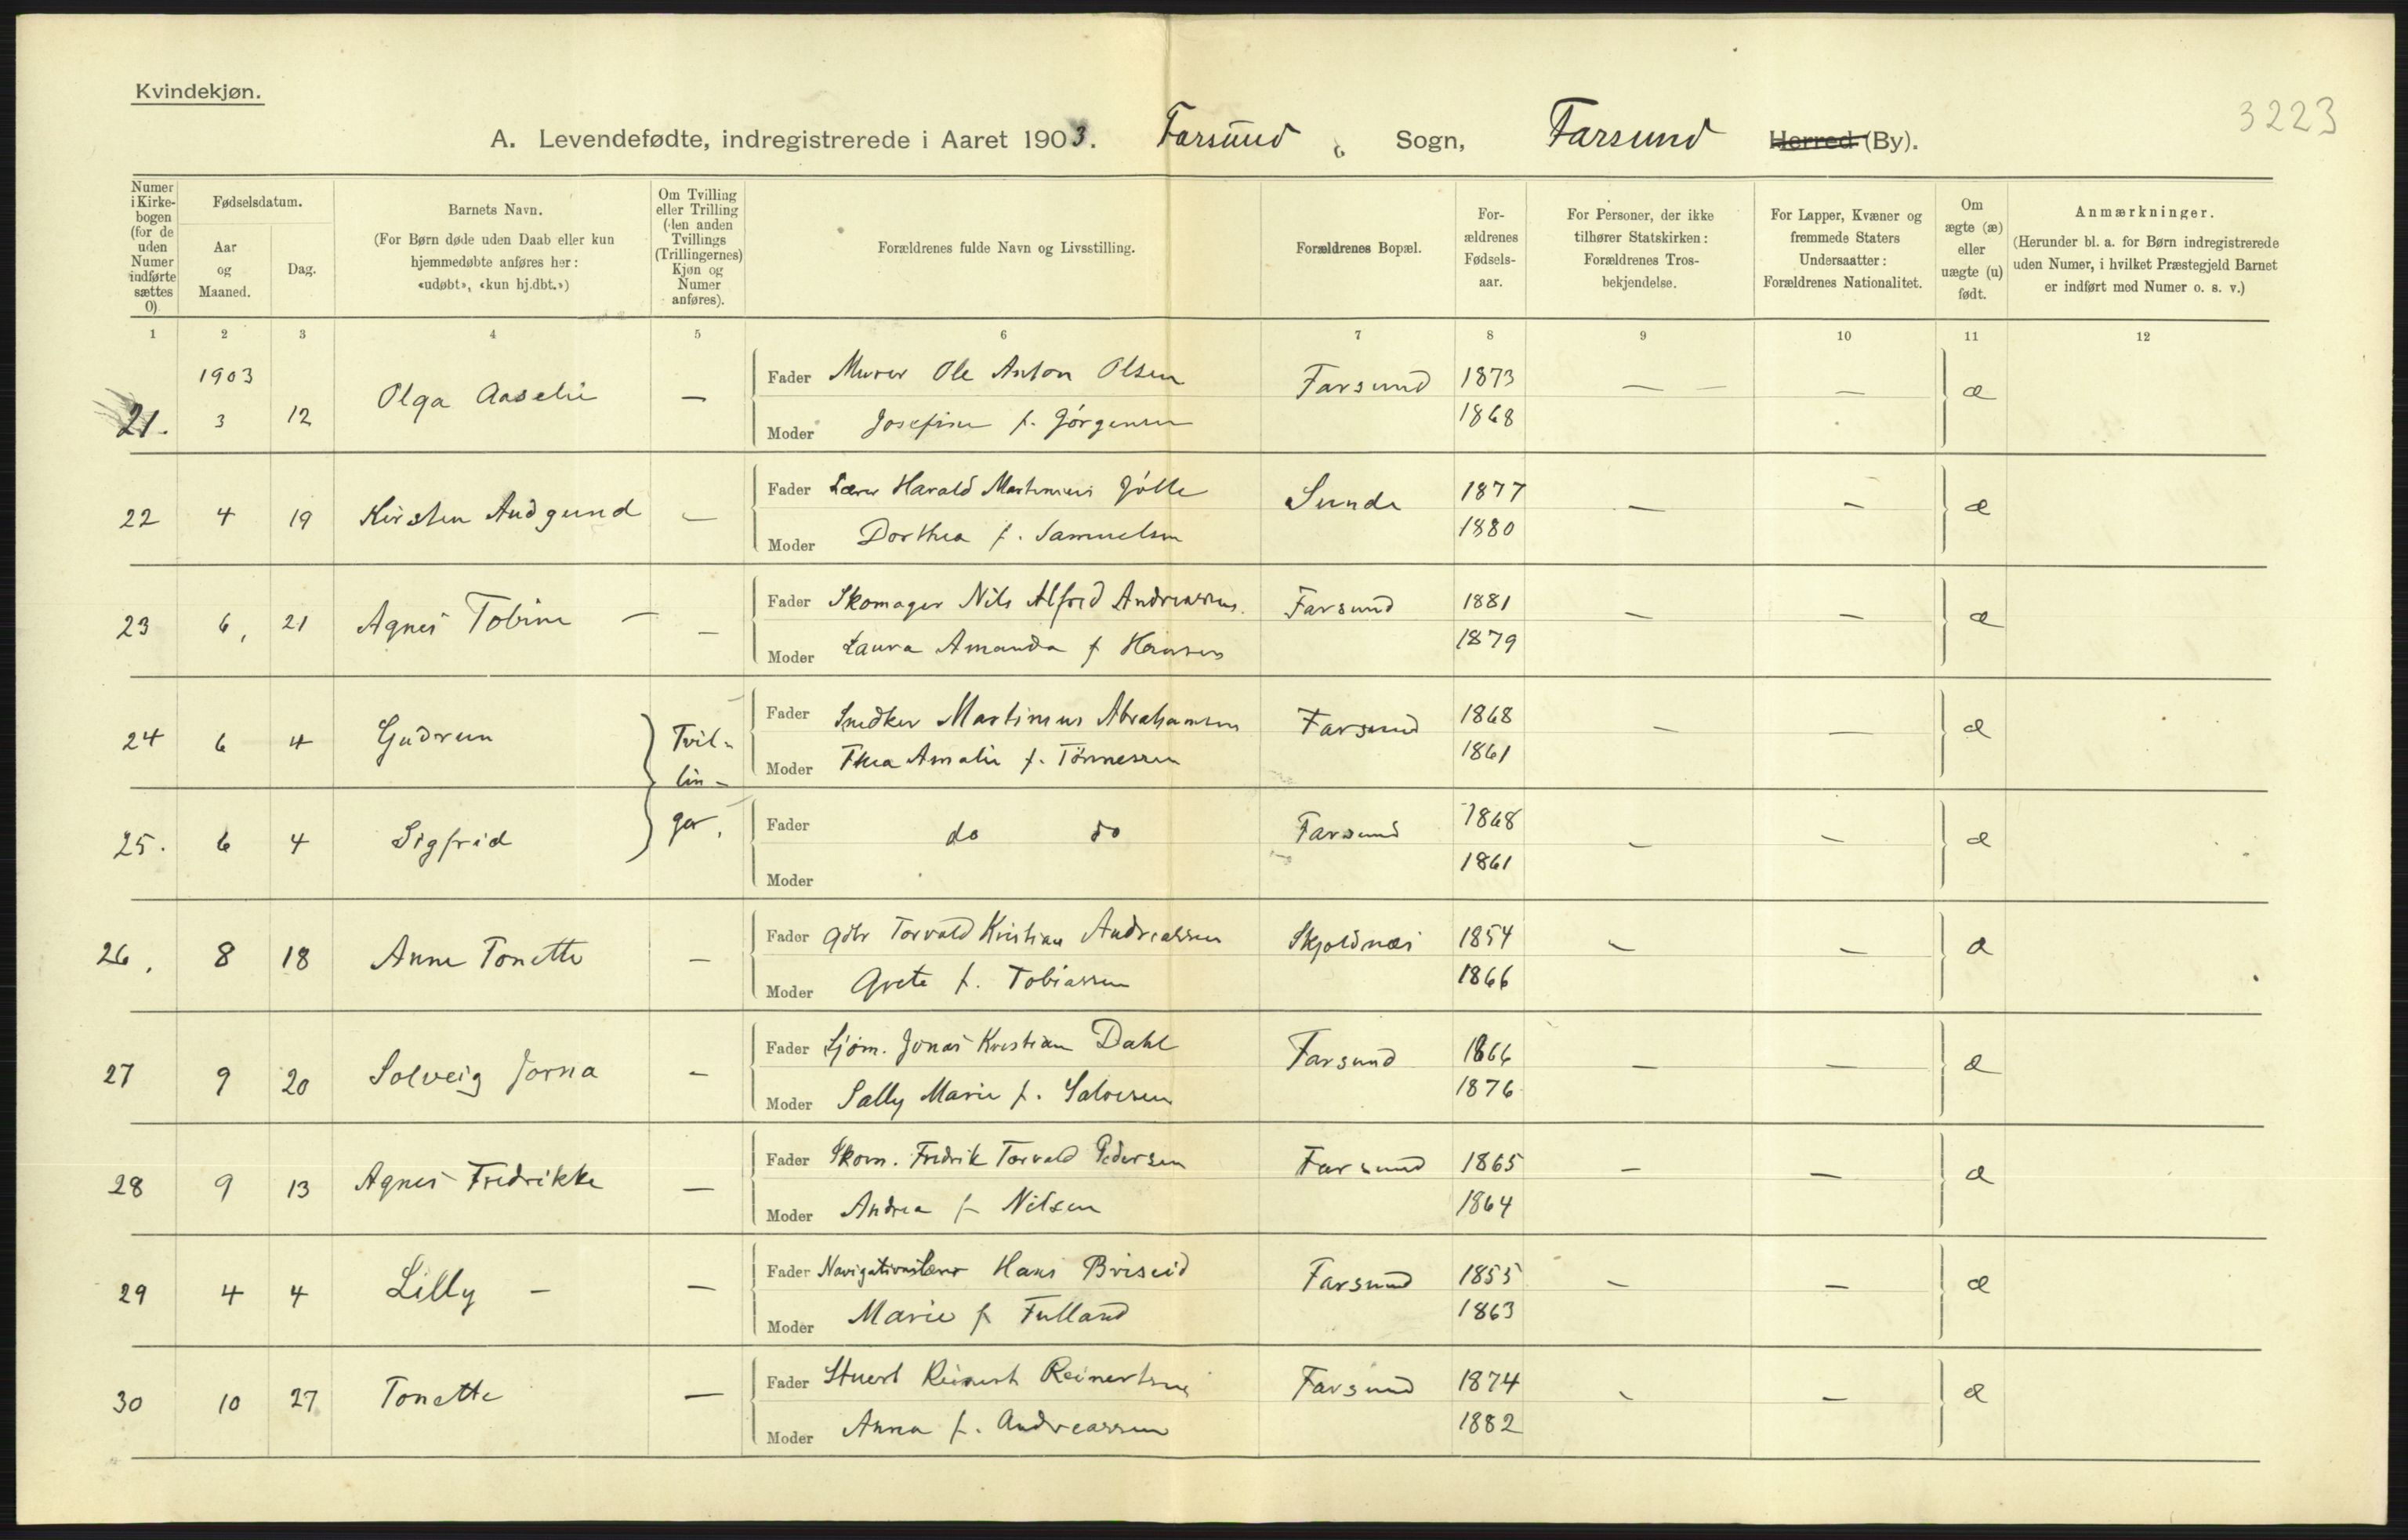 Kvindekjøn.
3223
A. Levendefødte, indregistrerede i Aaret 1903. Farsund Sogn, Farsund Herred (By).
Numer i Kirkebogen (for de uden Numer indførte sættes 0)
Fødselsdatum.
Aar og Maaned.
Dag.
Barnets Navn.
(For Børn døde uden Daab eller kun hjemmedøbte anføres her: «udøbt», «kun hj.dbt.»)
Om Tvilling eller Trilling (den anden Tvillings (Trillingernes) Kjøn og Numer anføres).
Forældrenes fulde Navn og Livsstilling.
Forældrenes Bopæl.
Forældrenes Fødselsaar.
For Personer, der ikke tilhører Statskirken: Forældrenes Trosbekjendelse.
For Lapper, Kvæner og fremmede Staters Undersaatter: Forældrenes Nationalitet.
Om ægte (æ) eller uægte (u) født.
Anmærkninger.
(Herunder bl. a. for Børn indregistrerede uden Numer, i hvilket Præstegjeld Barnet er indført med Numer o. s. v.)
1 2 3 4 5 6 7 8 9 10 11 12
1903
21. 3 12 Olga Aaselie — Fader Murer Ole Anton Olsen Farsund 1873 — — æ
Moder Josefine f. Jörgensen 1868
22 4 19 Kirsten Audgund — Fader Lærer Harald Martinius Jölle Sunde 1877 — — æ
Moder Dorthea f. Samuelsen 1880
23 6, 21 Agnes Tobine — — Fader Skomager Nils Alfred Andreassen. Farsund 1881 — — æ
Moder Laura Amanda f Hansen 1879
24 6 4 Gudrun Tvil- Fader Snedker Martinius Abrahamsen Farsund 1868 — — æ
lin- Moder Thea Amalie f. Tönnessen 1861
25. 6 4 Sigfrid ger. Fader do do Farsund 1868 — — æ
Moder 1861
26. 8 18 Anne Tonette — Fader Gdbr Torvald Kristian Andreassen Skjoldnæs 1854 — — æ
Moder Grete f. Tobiassen 1866
27 9 20 Solveig Jorna — Fader Sjöm. Jonas Kristian Dahl Farsund 1866 — — æ
Moder Sally Marie f. Salvesen 1876
28 9 13 Agnes Fredrikke — Fader Skom. Fredrik Torvald Pedersen Farsund 1865 — — æ
Moder Andrea f Nilsen 1864
29 4 4 Lilly — — Fader Navigationslærer Hans Briseid Farsund 1855 — — æ
Moder Marie f Fulland 1863
30 10 27 Tonette — Fader Stuert Reinert Reinertsen Farsund 1874 — — æ
Moder Anna f. Andreassen 1882